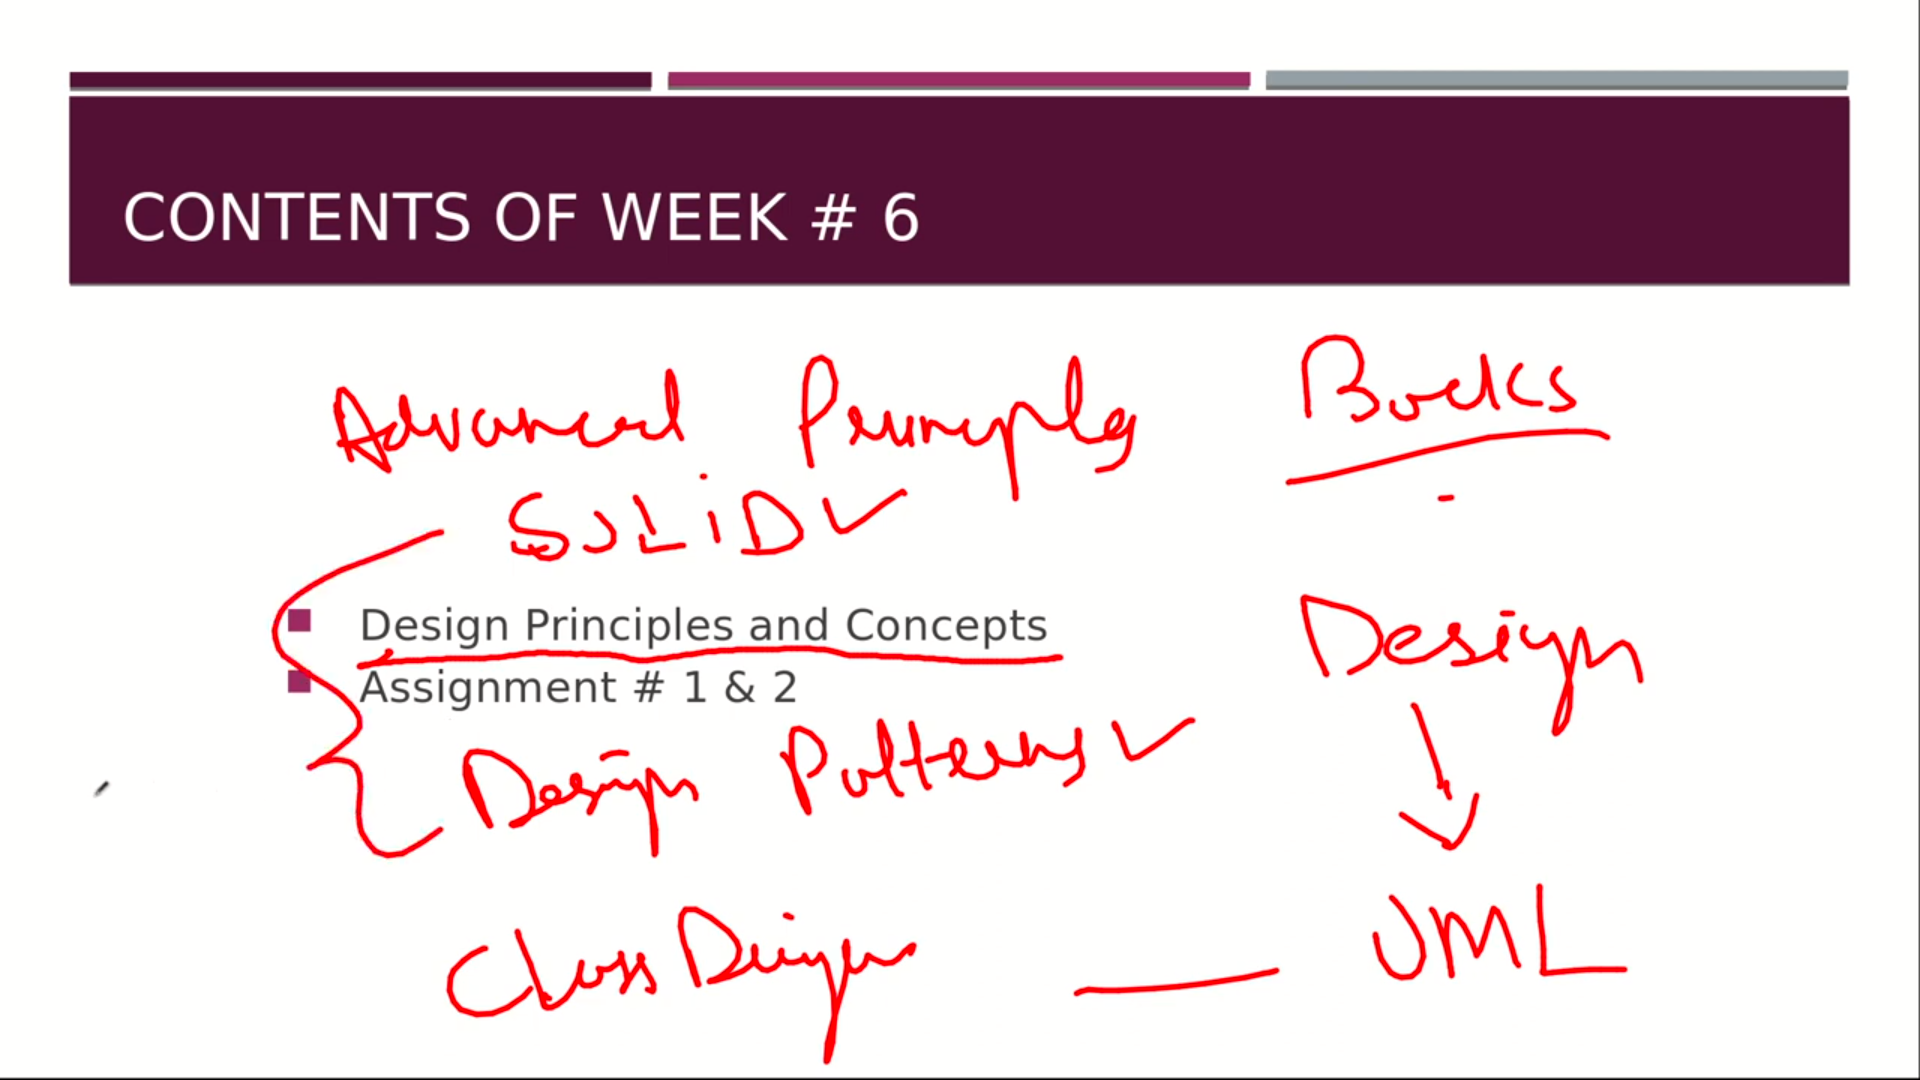 CONTENTS OF WEEK # 6
Advanced Principles
Books
SOLiD
Design Principles and Concepts
Design
Assignment # 1 & 2
Design Patterns
Class Design
UML